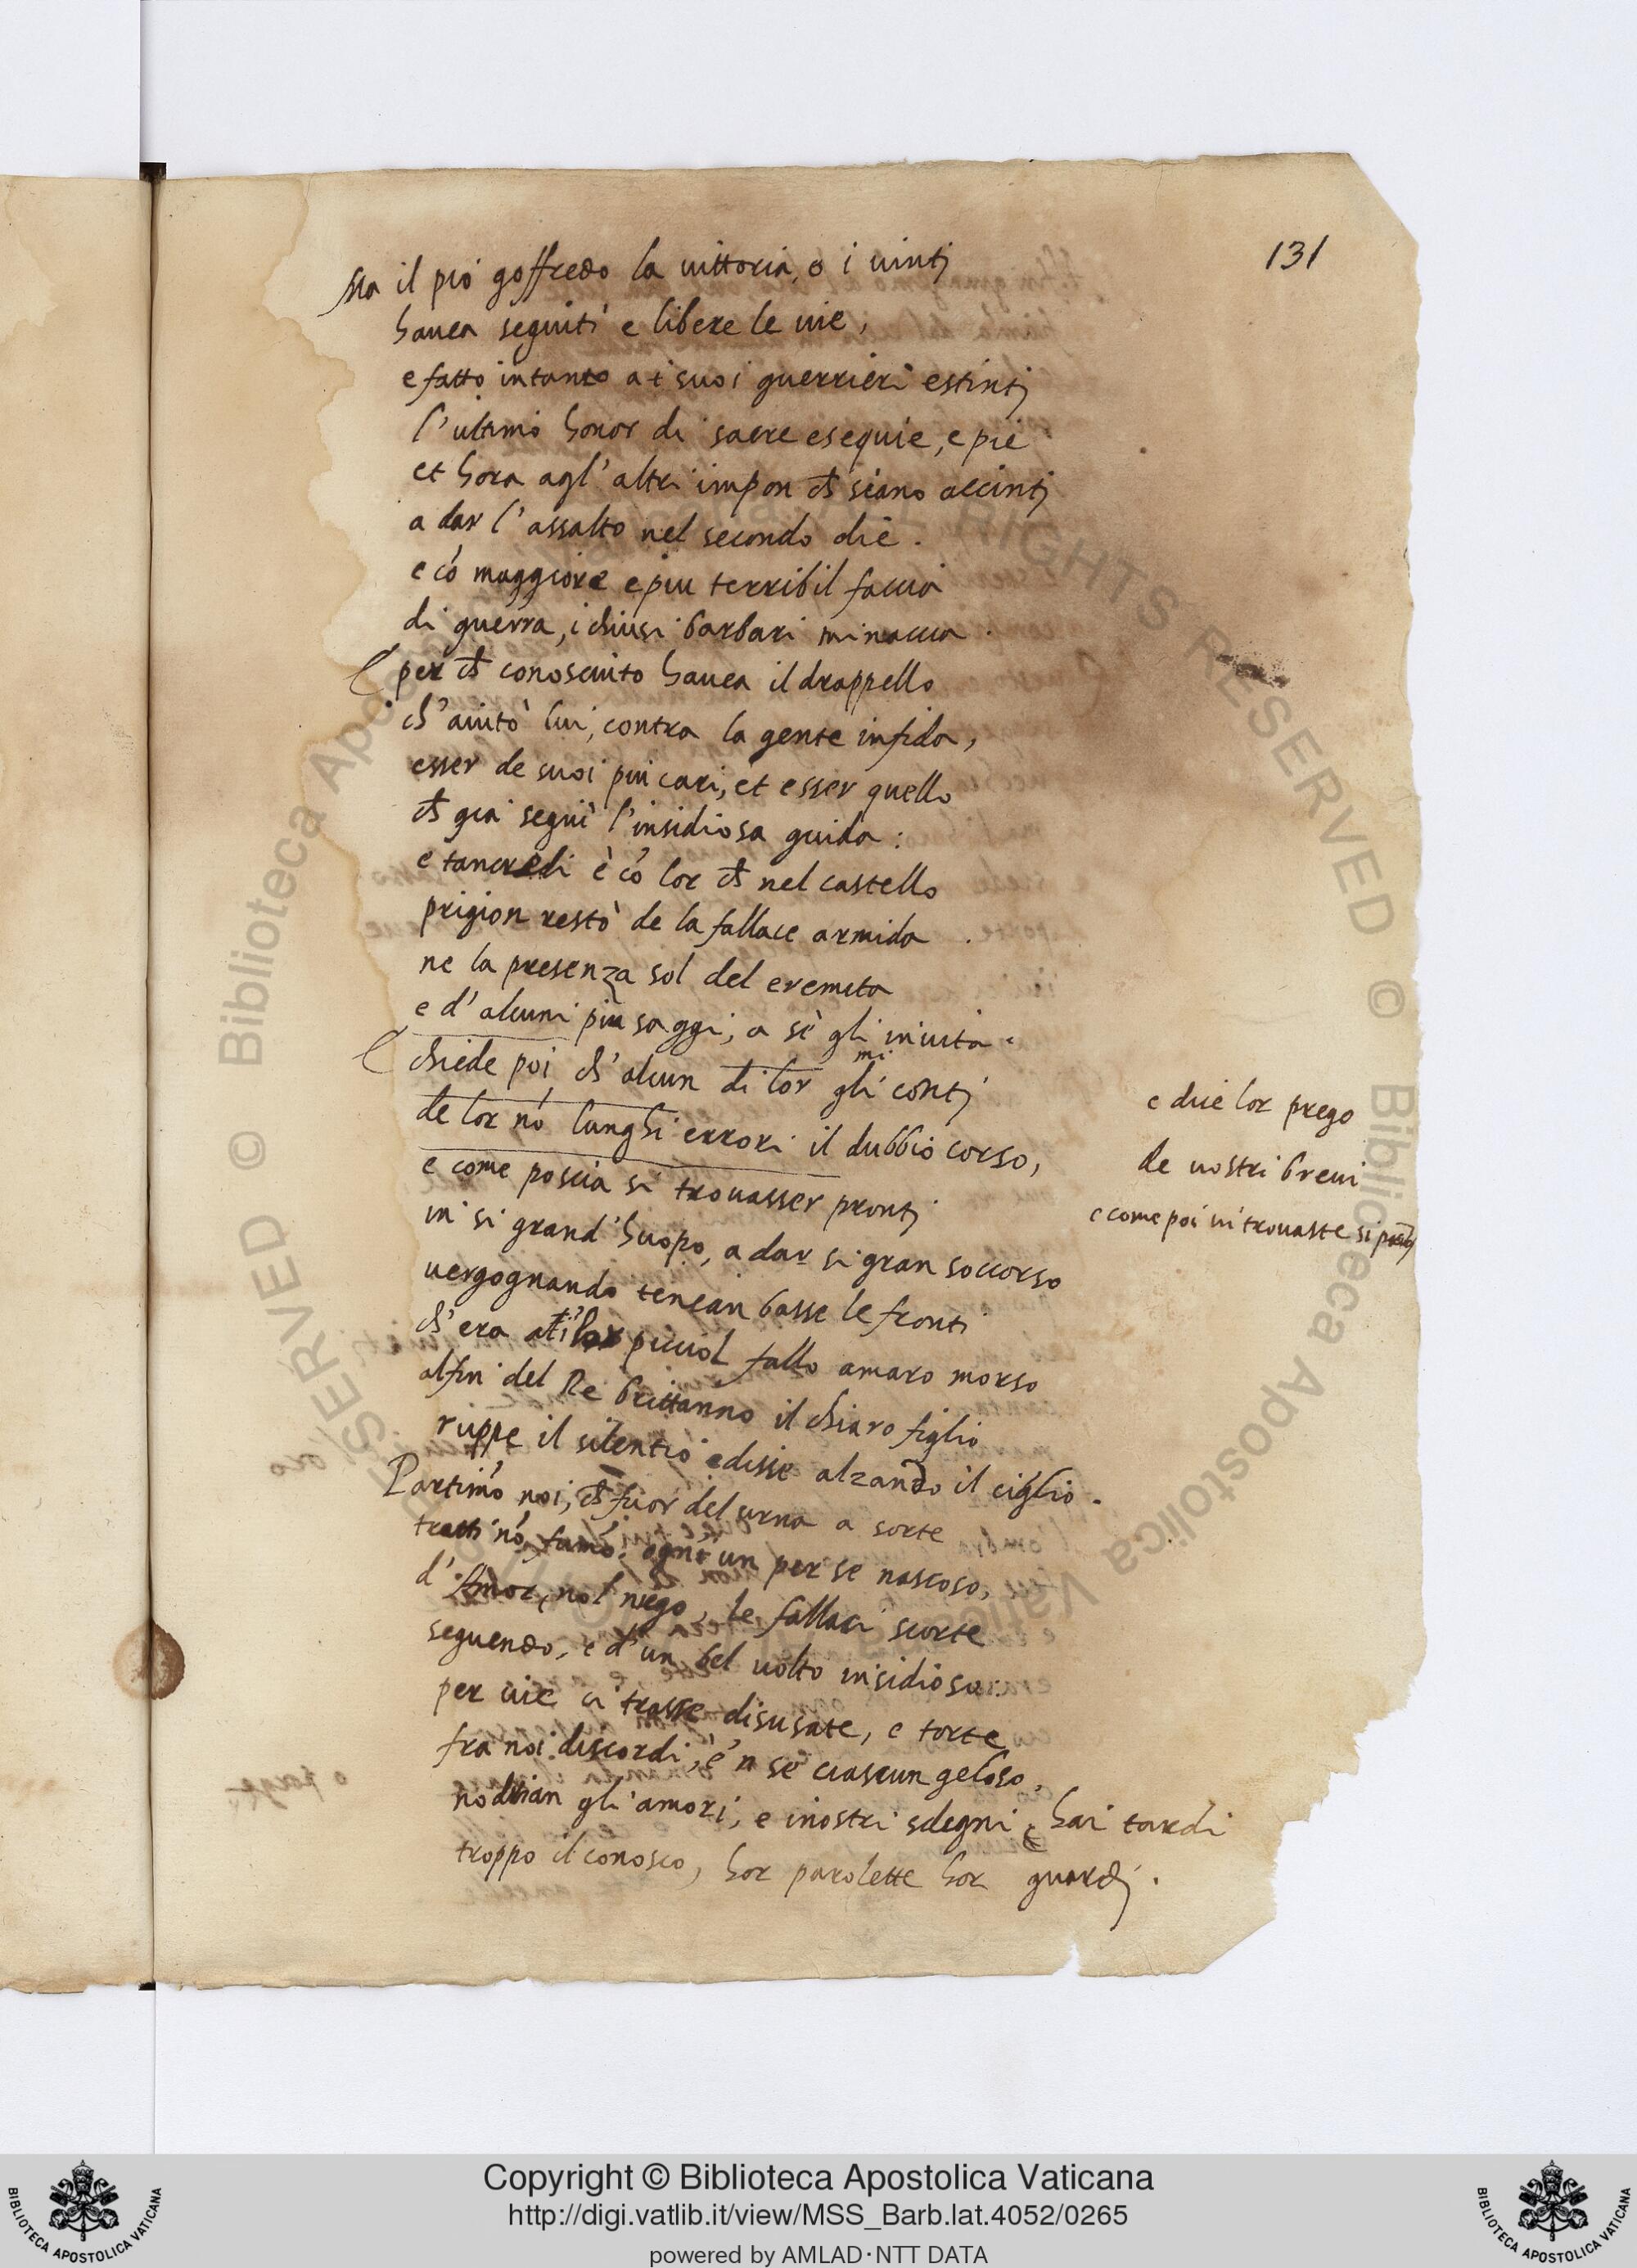 131
Ma il pio goffredo la vittoria, o i vinti
havea seguiti e libere le vie,
e fatto intanto a i suoi guerrieri estinti
l'ultimo honor di sacre esequie, e pie
et hora agl'altri impon ch̃ siano accinti
a dar l'assalto nel secondo die.
e cõ maggiore e piu terribil faccia
di guerra, i chiusi barbari minaccia.
per ch̃ conosciuto havea il drappello
ch'aiutò lui, contra la gente infida,
esser de suoi piu cari, et esser quello
ch̃ gia seguì l'insidiosa guida:
e tancredi è cõ lor ch̃ nel castello
prigion restò de la fallace armida.
ne la presenza sol del eremita
e d'alcuni più saggi, a sè gli invita.
chiede poi ch'alcun di lor gli conti
mi
de lor nõ lunghi errori il dubbio corso,
e come poscia si trovasser pronti
in si grand'huopo, a dar si gran soccorso
vergognando tenean basse le fronti
ch'era piccol fallo amaro morso
alfin del Re brittanno il chiaro figlio
ruppe il silentio e disse alzando il ciglio.
Partimõ noi, ch̃ fuor del urna a sorte
tratti nõ fumõ. ogn'un per se nascoso,
d'Amor, nol nego, le fallaci scorte
seguendo, e d'un bel volto insidioso:
per vie ci trasse disusate, e torte
fra noi discordi, e'n se ciascun geloso,
gli amori, e i nostri sdegni, hai tardi
troppo il conosco, hor parolette hor guardi.
e dice lor prego
de vostri brevi
e come poi vi trovaste si
Copyright © Biblioteca Apostolica Vaticana
http://digi.vatlib.it/view/MSS_Barb.lat.4052/0265
powered by AMLAD·NTT DATA
BIBLIOTECA APOSTOLICA VATICANA
BIBLIOTECA APOSTOLICA VATICANA